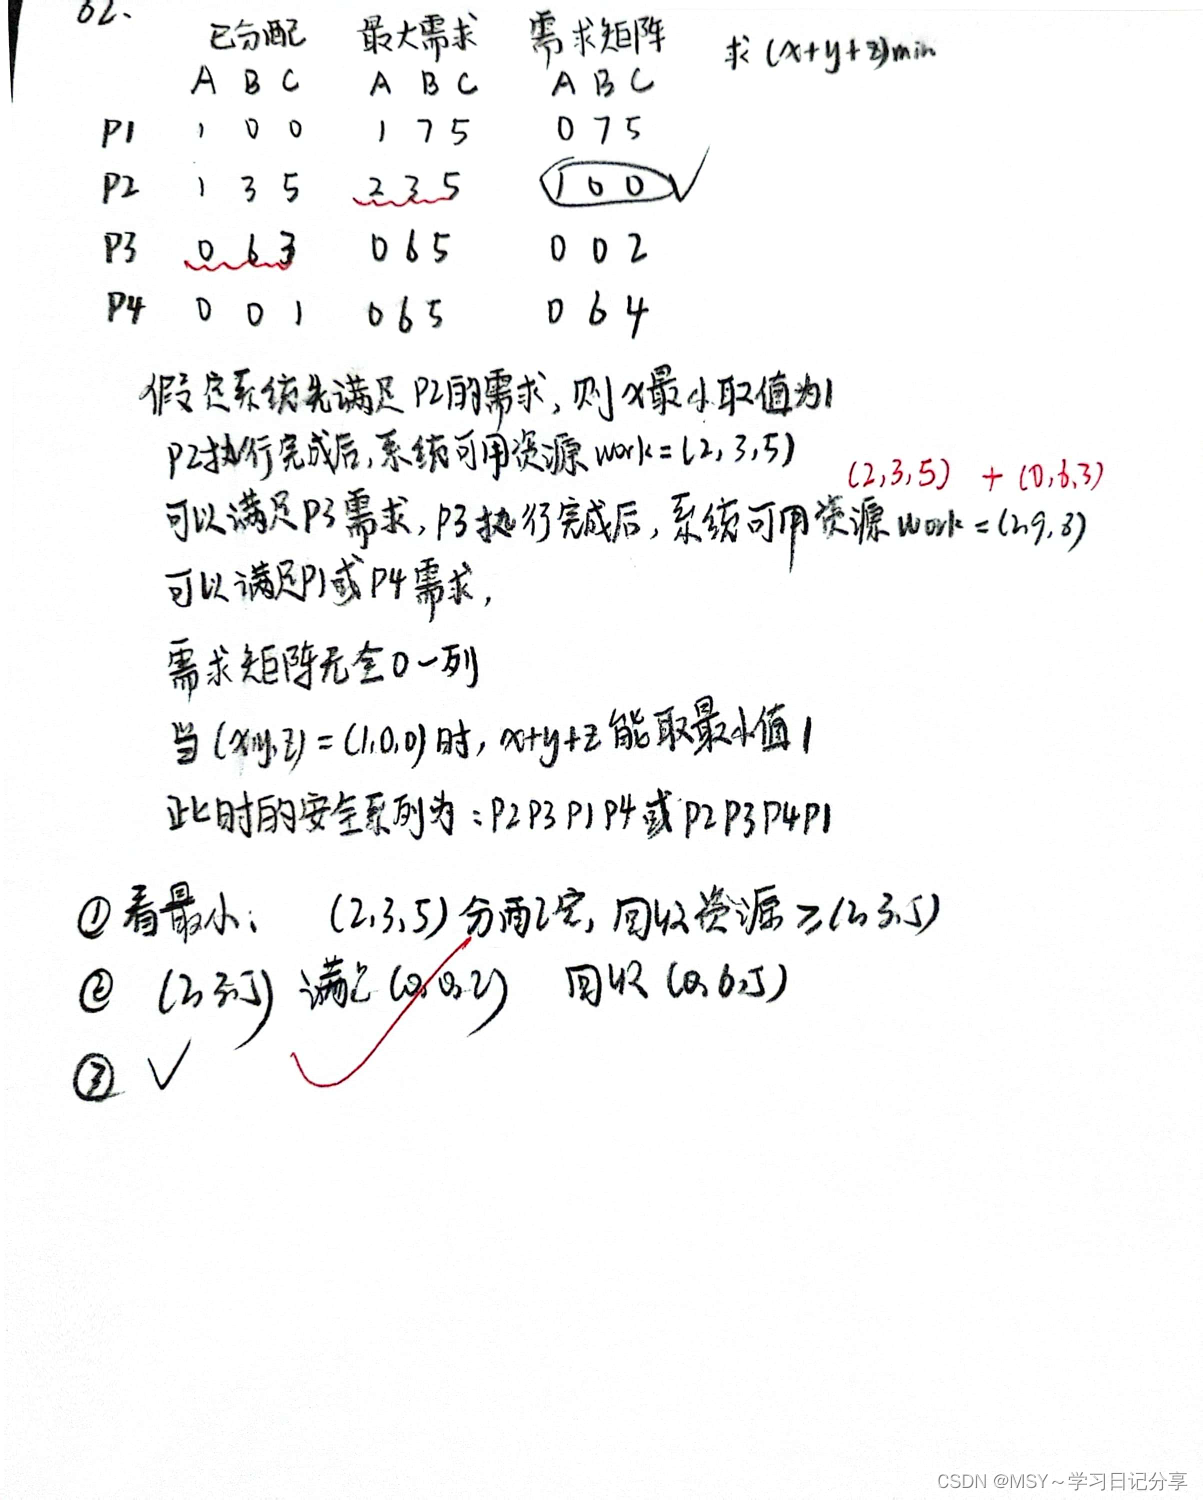 62.
已分配 最大需求 需求矩阵 求 (x+y+z)min
A B C A B C A B C
P1 1 0 0 1 7 5 0 7 5
P2 1 3 5 2 3 5 1 0 0 ✓
P3 0 6 3 0 6 5 0 0 2
P4 0 0 1 0 6 5 0 6 4
假定系统先满足P2的需求, 则x最小取值为1
P2执行完成后, 系统可用资源 work=(2,3,5)
(2,3,5) + (0,6,3)
可以满足P3需求, P3执行完成后, 系统可用资源 work=(2,9,8)
可以满足P1或P4需求,
需求矩阵无全0一列
当(x,y,z)=(1,0,0)时, x+y+z能取最小值1
此时的安全系列为: P2P3P1P4或P2P3P4P1
① 看最小: (2,3,5) 分配完, 回收资源 ≥(2,3,5)
② (2,3,5) 满足(0,0,2) 回收(0,6,5)
③ ✓
CSDN @MSY～学习日记分享